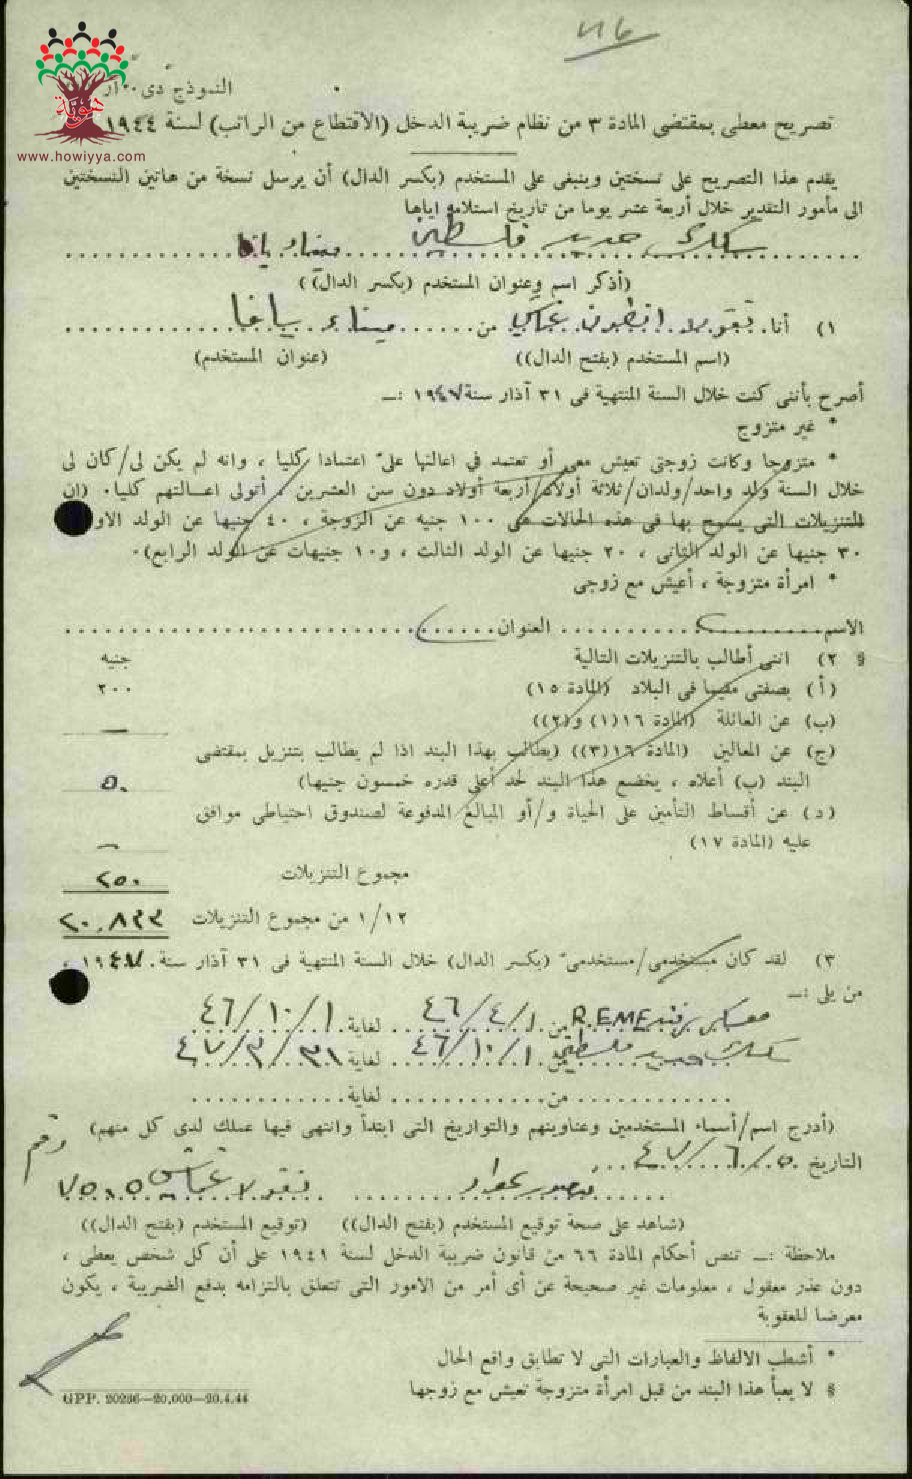 ٧١٦
هوية
www.howiyya.com
النموذج دى٠٠ار
تصريح معطى بمقتضى المادة ٣ من نظام ضريبة الدخل (الاقتطاع من الراتب) لسنة ١٩٤٤
يقدم هذا التصريح على نسختين وينبغى على المستخدم (بكسر الدال) أن يرسل نسخة من هاتين النسختين
الى مأمور التقدير خلال أربعة عشر يوما من تاريخ استلامه اياها
سكك حديد فلسطين ميناء يافا
(أذكر اسم وعنوان المستخدم (بكسر الدال))
١) أنا نقولا انطون من ميناء يافا
(اسم المستخدم (بفتح الدال)) (عنوان المستخدم)
أصرح بأننى كنت خلال السنة المنتهية فى ٣١ آذار سنة ١٩٤٧ :—
* غير متزوج
* متزوجا وكانت زوجتى تعيش معى أو تعتمد فى اعالتها علىّ اعتمادا كليا ، وانه لم يكن لى/كان لى
خلال السنة ولد واحد/ولدان/ثلاثة أولاد/أربعة أولاد دون سن العشرين ، أتولى اعالتهم كليا٠ (ان
التنزيلات التى يسمح بها فى هذه الحالات هى ١٠٠ جنيه عن الزوجة ، ٤٠ جنيها عن الولد الاو
٣٠ جنيها عن الولد الثانى ، ٢٠ جنيها عن الولد الثالث ، و١٠ جنيهات عن الولد الرابع)٠
* امرأة متزوجة ، أعيش مع زوجى
الاسم العنوان
§ ٢) اننى أطالب بالتنزيلات التالية جنيه
(أ) بصفتى مقيما فى البلاد (المادة ١٥) ٢٠٠
(ب) عن العائلة (المادة ١٦(١) و(٢)) —
(ج) عن المعالين (المادة ١٦(٣)) (يطالب بهذا البند اذا لم يطالب بتنزيل بمقتضى
البند (ب) أعلاه ، يخضع هذا البند لحد أعلى قدره خمسون جنيها) ٥٠
(د) عن أقساط التأمين على الحياة و/أو المبالغ المدفوعة لصندوق احتياطى موافق
عليه (المادة ١٧) —
مجموع التنزيلات ٢٥٠
١/١٢ من مجموع التنزيلات ٢٠,٨٣٣
٣) لقد كان مستخدمى/مستخدمىّ (بكسر الدال) خلال السنة المنتهية فى ٣١ آذار سنة ١٩٤٧ ،
من يلى :—
معسكر R.EME من ١/٤/٤٦ لغاية ١/١٠/٤٦
سكك حديد فلسطين من ١/١٠/٤٦ لغاية ٣١/٣/٤٧
من لغاية
(أدرج اسم/أسماء المستخدمين وعناوينهم والتواريخ التى ابتدأ وانتهى فيها عملك لدى كل منهم)
التاريخ ٥/٦/٤٧ رقم
نقولا ٧٥٨٥
(شاهد على صحة توقيع المستخدم (بفتح الدال)) (توقيع المستخدم (بفتح الدال))
ملاحظة :— تنص أحكام المادة ٦٦ من قانون ضريبة الدخل لسنة ١٩٤١ على أن كل شخص يعطى ،
دون عذر معقول ، معلومات غير صحيحة عن أى أمر من الامور التى تتعلق بالتزامه بدفع الضريبة ، يكون
معرضا للعقوبة
* أشطب الالفاظ والعبارات التى لا تطابق واقع الحال
§ لا يعبأ هذا البند من قبل امرأة متزوجة تعيش مع زوجها
GPP. 20286—20,000—20.4.44